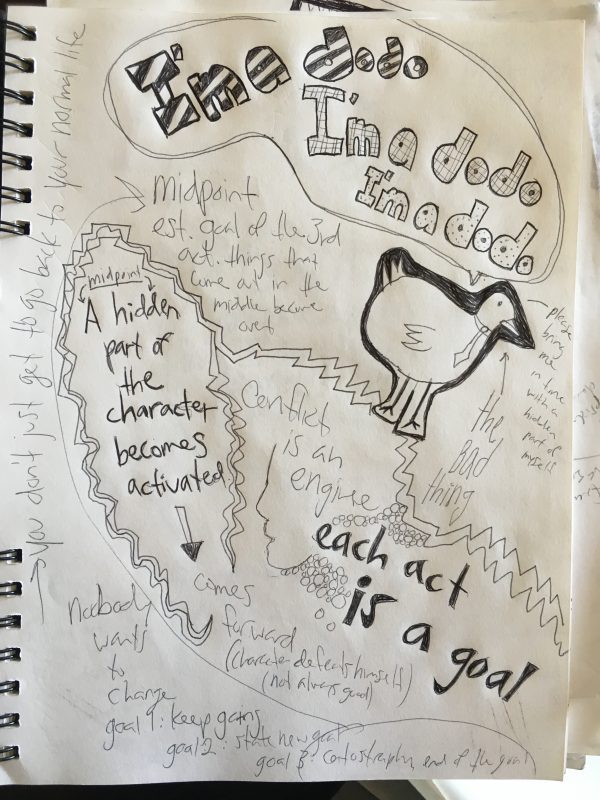 I'm a dodo
I'm a dodo
I'm a dodo
midpoint
est. goal of the 3rd
act. things that
come out in the
middle become
overt
→ you don't just get to go back to your normal life
midpoint
A hidden
part of
the
character
becomes
activated
comes
forward
(character defeats himself)
(not always good)
Conflict
is an
engine
please
bring
me
in tune
with a
hidden
part of
myself
the
Bad
thing
each act
is a goal
noobody
wants
to
change
goal 1: keep going
goal 2: state new goal
goal 3: end of the goal